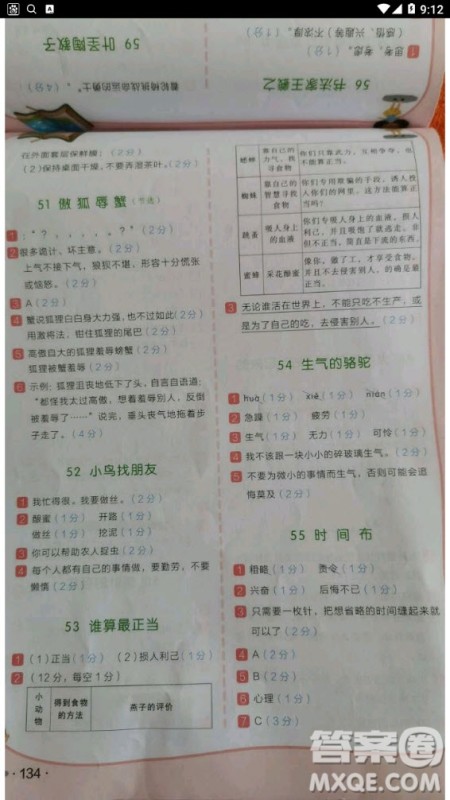 9:12
59 叶圣陶教子
56 书法家王羲之
在外面套层保鲜膜；(2分)
(2)保持桌面干燥，不要弄湿茶叶。(2分)
51 傲狐辱蟹(节选)
1 :“?,,,。?”(2分)
2 很多诡计，坏主意。(2分)
上气不接下气，狼狈不堪，形容十分慌张
或恼怒。(2分)
3 A(2分)
4 蟹说狐狸白白身大力强，也不过如此(2分)
用激将法，钳住狐狸的尾巴(2分)
5 高傲自大的狐狸羞辱螃蟹(2分)
狐狸被蟹羞辱(2分)
6 示例：狐狸沮丧地低下了头，自言自语道：
“都怪我太过高傲，想羞辱别人，反倒
被羞辱了……”说完，垂头丧气地拖着步
子走了。(4分)
52 小鸟找朋友
1 我忙得很，我要做丝。(2分)
2 酿蜜(1分) 开路(1分)
做丝(1分) 挖泥(1分)
3 你可以帮助农人捉虫(2分)
4 每个人都有自己的事情做，要勤劳，不要
懒惰(2分)
53 谁算最正当
1 (1)正当(1分) (2)损人利己(1分)
2 (12分，每空1分)
小动物 得到食物的方法 燕子的评价
· 134 ·
蟋蟀 靠自己的力气，找寻食物 你们只靠武力，互相争夺，也不能算正当。
蜘蛛 靠自己的智慧寻找食物 你们专用欺骗的手段，诱人投入你们的网里，这方法能算正当吗？
跳蚤 吸人身上的血液 你们专吸人身上的血液，损人利己，并且吸饱了就逃走，非但不正当，简直是下流的东西。
蜜蜂 采花酿蜜 像你，做了工，才享受食物，并且不去侵害别人，的确是最正当。
3 无论谁活在世界上，不能只吃不生产，或
是为了自己的吃，去侵害别人。(2分)
54 生气的骆驼
1 huá(1分) xiē(1分) niān(1分)
2 急躁(1分) 疲劳(1分)
3 生气(1分) 无力(1分) 可怜(1分)
4 我不该跟一块小小的碎玻璃生气。(2分)
5 不要为微小的事情而生气，否则可能会追
悔莫及(2分)
55 时间布
1 粗略(1分) 责令(1分)
2 兴奋(1分) 后悔不已(1分)
3 只需要一枚针，把想省略的时间缝起来就
可以了(2分)
4 A(2分)
5 B(2分)
6 心理(1分)
7 C(3分)
答案圈
MXQE.COM